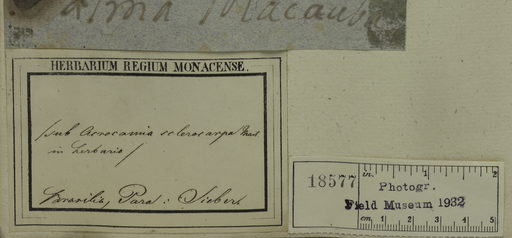 Palma Macauba
HERBARIUM REGIUM MONACENSE.
/sub Acrocomia sclerocarpa Mart
in herbario/
Brasilia, Para: Sieber.
18577
in. 1 2
Photogr.
Field Museum 1932
cm. 1 2 3 4 5